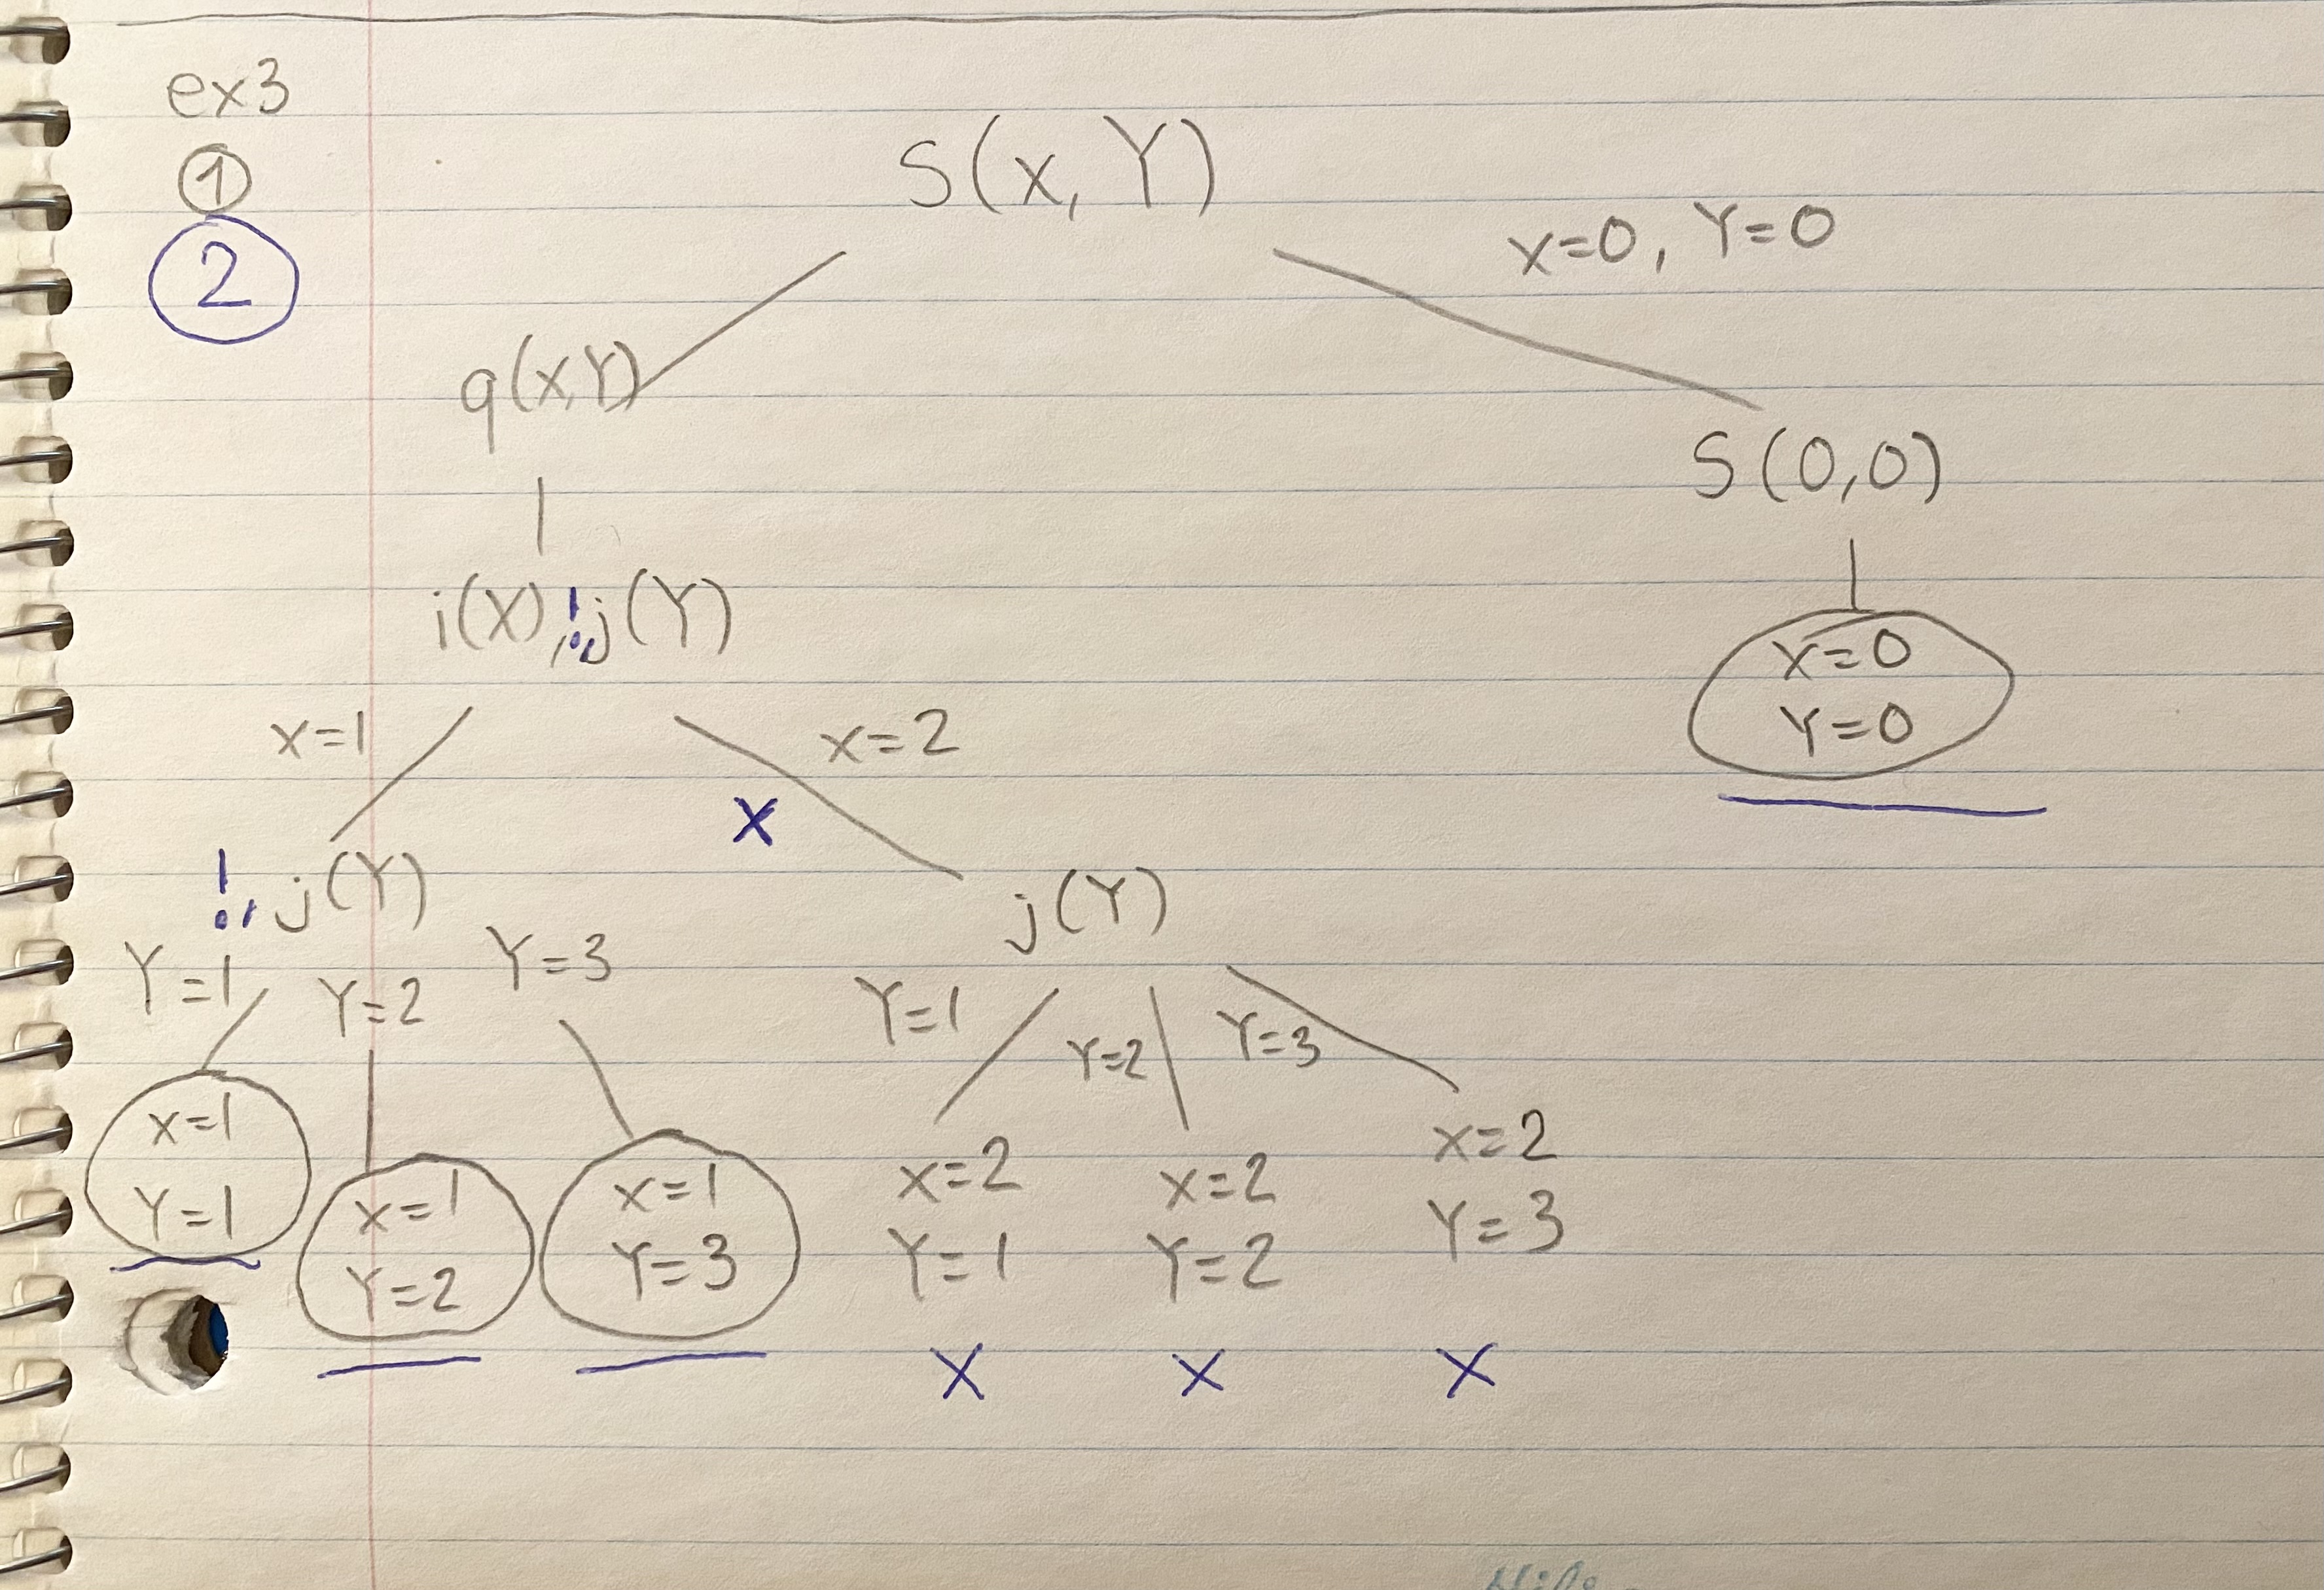 ex3
①
②
S(x, Y)
x=0, Y=0
q(x,Y)
S(0,0)
i(X),!,j(Y)
x=0
Y=0
x=1
x=2
x
!, j(Y)
j(Y)
Y=1
Y=2
Y=3
Y=1
Y=2
Y=3
x=1
Y=1
x=1
Y=2
x=1
Y=3
x=2
Y=1
x=2
Y=2
x=2
Y=3
x x x